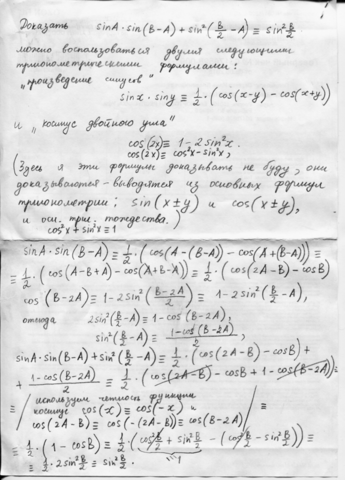 Доказать sinA·sin(B-A) + sin²(B/2 - A) ≡ sin² B/2
можно воспользоваться двумя следующими
тригонометрическими формулами:
"произведение синусов"
sinx·siny ≡ 1/2·(cos(x-y) - cos(x+y))
и "косинус двойного угла"
cos(2x) ≡ 1-2sin²x.
cos(2x) ≡ cos²x-sin²x,
(Здесь я эти формулы доказывать не буду, они
доказываются-выводятся из основных формул
тригонометрии: sin(x±y) и cos(x±y),
и осн. триг. тождества.)
cos²x+sin²x≡1
sinA·sin(B-A) ≡ 1/2·(cos(A-(B-A)) - cos(A+(B-A))) ≡
≡ 1/2·(cos(A-B+A) - cos(A+B-A)) ≡ 1/2·(cos(2A-B) - cosB)
cos(B-2A) ≡ 1-2sin²((B-2A)/2) ≡ 1-2sin²(B/2 - A),
отсюда 2sin²(B/2 - A) ≡ 1-cos(B-2A),
sin²(B/2 - A) ≡ (1-cos(B-2A))/2,
sinA·sin(B-A) + sin²(B/2 - A) ≡ 1/2·(cos(2A-B) - cosB) +
+ (1-cos(B-2A))/2 ≡ 1/2·(cos(2A-B) - cosB + 1 - cos(B-2A)) ≡
≡ / используем четность функции
косинус cos(x) ≡ cos(-x) и
cos(2A-B) ≡ cos(-(2A-B)) ≡ cos(B-2A) / ≡
≡ 1/2·(1-cosB) ≡ 1/2·(cos² B/2 + sin² B/2 - (cos² B/2 - sin² B/2)) ≡
≡ 1/2·2sin² B/2 ≡ sin² B/2.